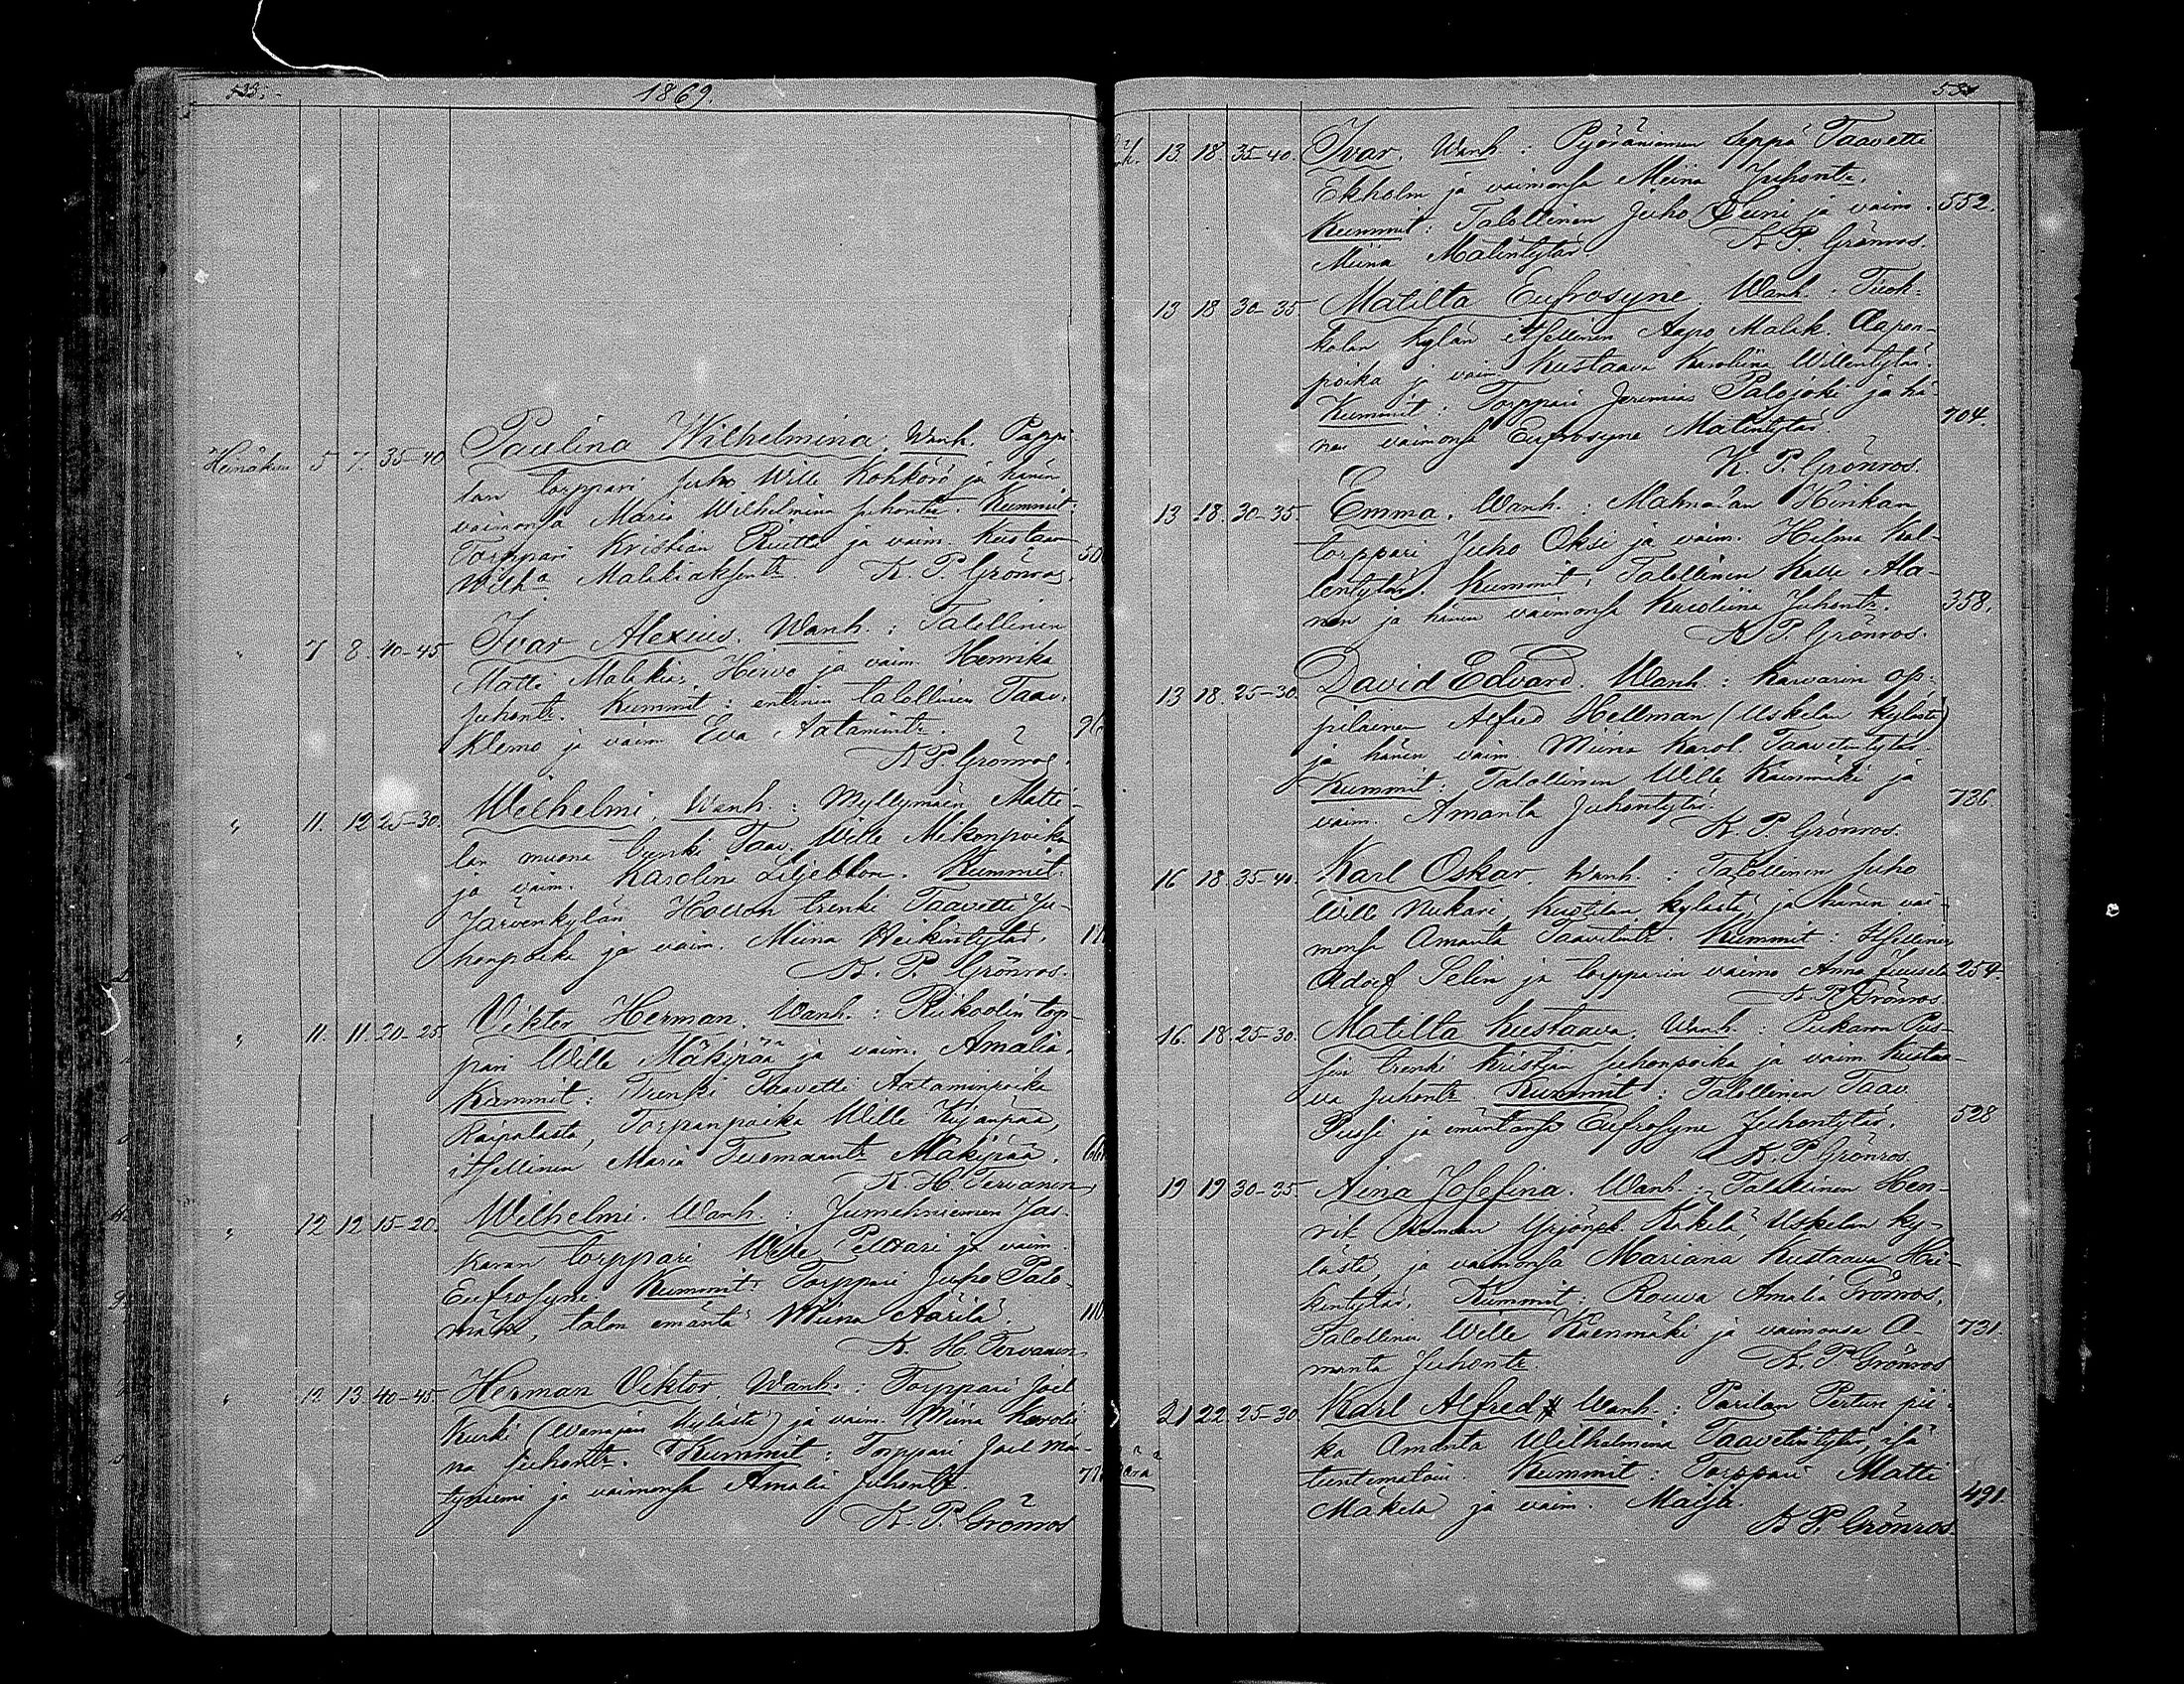 533.
1869.
Heinäkuu 5 7. 35-40 Paulina Wilhelmina. Wanh. Pappi-
lan torppari Juho Wille Kohkörö ja hänen
waimonsa Maria Wilhelmina Juhontr. Kummit:
Torppari Kristian ja waim. Kustaawa
Wilhna Malakiaksentr. K. P. Grönros.
" 7 8. 40-45 Ivar Alexius. Wanh.: Talollinen
Matti Malakias Hewo ja waim. Henrika
Juhontr. Kummit: entinen talollinen Taav.
Klemo ja waim. Eva Aatamintr.
K. P. Grönros.
" 11. 12 25-30. Wilhelmi. Wanh.: Myllymäen Matti-
lan muona trenki Taav. Wille Mikonpoika
ja waim. Karolina Liljeblom. Kummit:
Järwenkylän trenki Taavetti Ju-
honpoika ja waim. Miina Heikintytär.
K. P. Grönros.
" 11. 11. 20-25 Viktor Herman. Wanh.: torp-
pari Wille Mäkipää ja waim. Amalia.
Kummit: Trenki Taavetti Aataminpoika
Raipalasta, Torpanpoika Wille Kujanpää,
itsellinen Maria Tuomaantr. Mäkipää.
K. H. Terwanen
" 12 12 15-20. Wilhelmi. Wanh.:
torppari Wille Pelttari ja waim.
Eufrosyne. Kummit: Torppari Juho Palo-
mäki, talon emäntä Miina Äärilä.
K. H. Terwanen
" 12. 13 40-45. Herman Viktor. Wanh.: Torppari Joel
Kurki (Wanajan kylästä) ja waim. Miina Karolii-
na Juhontr. Kummit: Torppari Joel Män-
tyniemi ja waimonsa Amalia Juhontr.
K. P. Grönros
13. 18 35-40. Ivar. Wanh.: Pyöräniemen Seppä Taavetti
Ekholm ja waimonsa Miina Juhontr.
Kummit: Talollinen Juho ja waim. 552.
Miina Matintytär. K. P. Grönros.
13 18 30-35 Matilta Eufrosyne. Wanh.: Tuok-
kolan kylän itsellinen Aapo Malak. Aapon-
poika ja waim. Kustaava Karoliina Willentytär.
Kummit: Torppari Jeremias Palojoki ja hä-
nen waimonsa Eufrosyne Matintytär. 704.
K. P. Grönros.
13 18. 30-35. Emma. Wanh.: Mahnalan Hirikan
torppari Juho Oksi ja waim. Hilma Kal-
lentytär. Kummit: Talollinen Kalle Ala-
nen ja hänen waimonsa Karoliina Juhontr. 358.
K. P. Grönros.
13 18. 25-30. David Edvard. Wanh.: Karwarin op-
pilainen Alfred Hellman (Uskelan kylästä)
ja hänen waim. Miina Karol. Taavetintytär.
Kummit: Talollinen Wille Käenmäki ja
waim. Amanta Juhontytär. 736
K. P. Grönros.
16 18 35-40. Karl Oskar. Wanh.: Talollinen Juho
Wille Nukari, kylästä, ja hänen wai-
monsa Amanta Taavetintr. Kummit: Itsellinen
Adolf Selin ja torpparin waimo Anna Juusela 254.
K. P. Grönros
16. 18 25-30. Matilta Kustaava. Wanh.: Pukaran Pus-
sin trenki Kristjan Juhonpoika ja waim. Kustaa-
va Juhontr. Kummit: Talollinen Taav.
Pussi ja emäntänsä Eufrosyne Juhontytär. 528
K. P. Grönros.
19 19 30-35. Aina Josefina. Wanh.: Talollinen Hen-
rik Herman Yrjönpk. Kokela, Uskelan ky-
lästä, ja waimonsa Mariana Kustaava Hei-
kintytär. Kummit: Rouwa Amalia Grönros,
Talollinen Wille Käenmäki ja waimonsa A- 731.
manta Juhontr. K. P. Grönros
21 22. 25-30 Karl Alfred Wanh.: Parilan Pertun pii-
ka Amanta Wilhelmina Taavetintytär, isä
tuntematoin. Kummit: Torppari Matti
Mäkelä ja waim. 491.
K. P. Grönros.